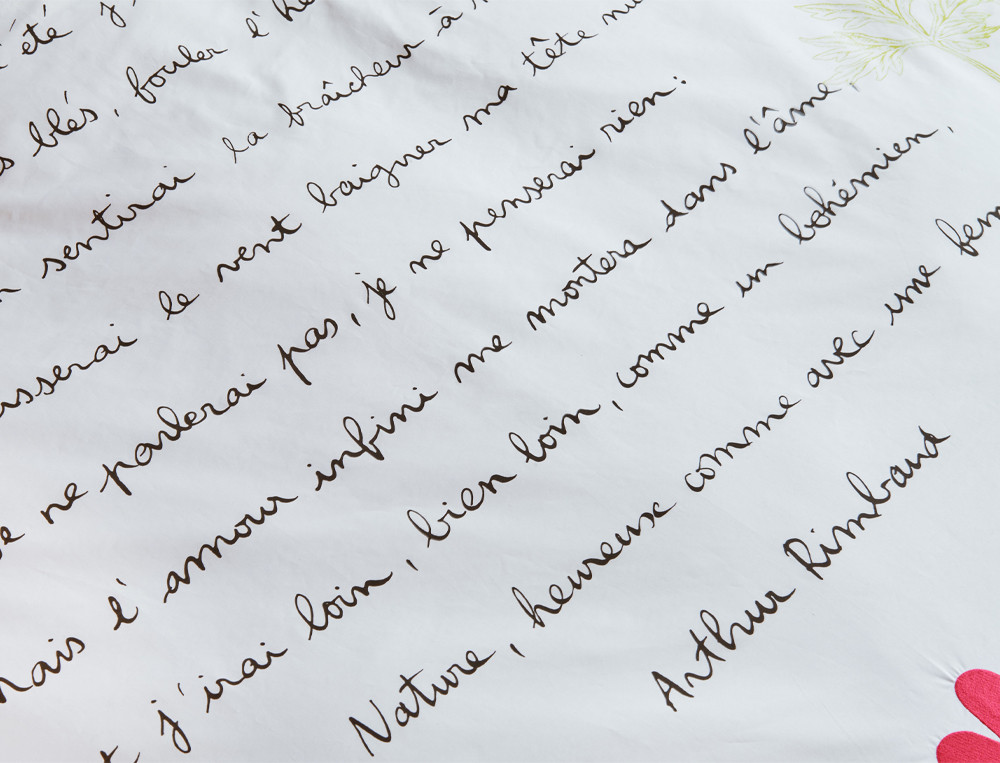 été j
s blés, fouler l'he
n sentirai la fraîcheur à
isserai le vent baigner ma tête nu
e ne parlerai pas, je ne penserai rien:
Mais l'amour infini me montera dans l'âme,
t j'irai loin, bien loin, comme un bohémien,
Nature, heureuse comme avec une fem
Arthur Rimbaud